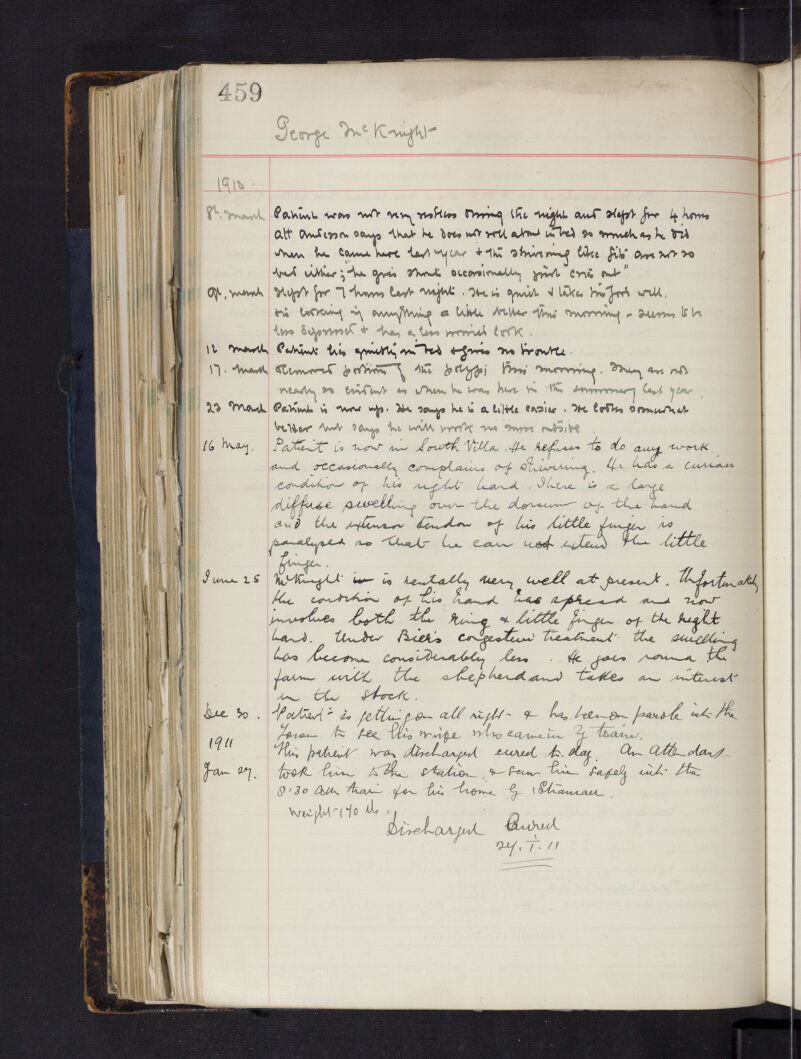 459
George McKnight
1910.
8th March Patient was not very restless during the night and slept for 4 hours
Att Anderson says that he does not roll about in bed so much as he did
when he came here last year & the shivering like fits are not so
bad either; "he gives shouts occasionally just cries out"
9th, March Slept for 7 hours last night. He is quiet & likes his food well.
His looking if anything a little better this morning - seems to be
less depressed & has a less worried look.
12 March Patient lies quietly in bed & gives no trouble.
17. March Removed portions of the polypi this morning. They are not
nearly so evident as when he was here in the summer last year.
23 March Patient is now up. He says he is a little easier. He looks somewhat
better but says he will work no more outside
16 May. Patient is now in South Villa. He refuses to do any work
and occasionally complains of shivering. He has a curious
condition of his right hand. There is a large
diffuse swelling over the dorsum of the hand
and the extensor tendon of his little finger is
paralysed so that he can not extend the little
finger.
June 25 McKnight is mentally very well at present. Unfortunately
the condition of his hand has spread and now
involves both the ring & little finger of the right
hand. Under Bier's congestive treatment the swelling
has become considerably less. He goes round the
farm with the shepherd and takes an interest
in the stock.
Dec 30. Patient is getting on all right - & has been on parole into the
Town to see his wife who came in by train.
1911
This patient was discharged cured to day. An attendant
Jan 27. took him to the station & saw him safely into the
8.30 am train for his home by
Weight 140 lbs.
Discharged Cured
27.1.11